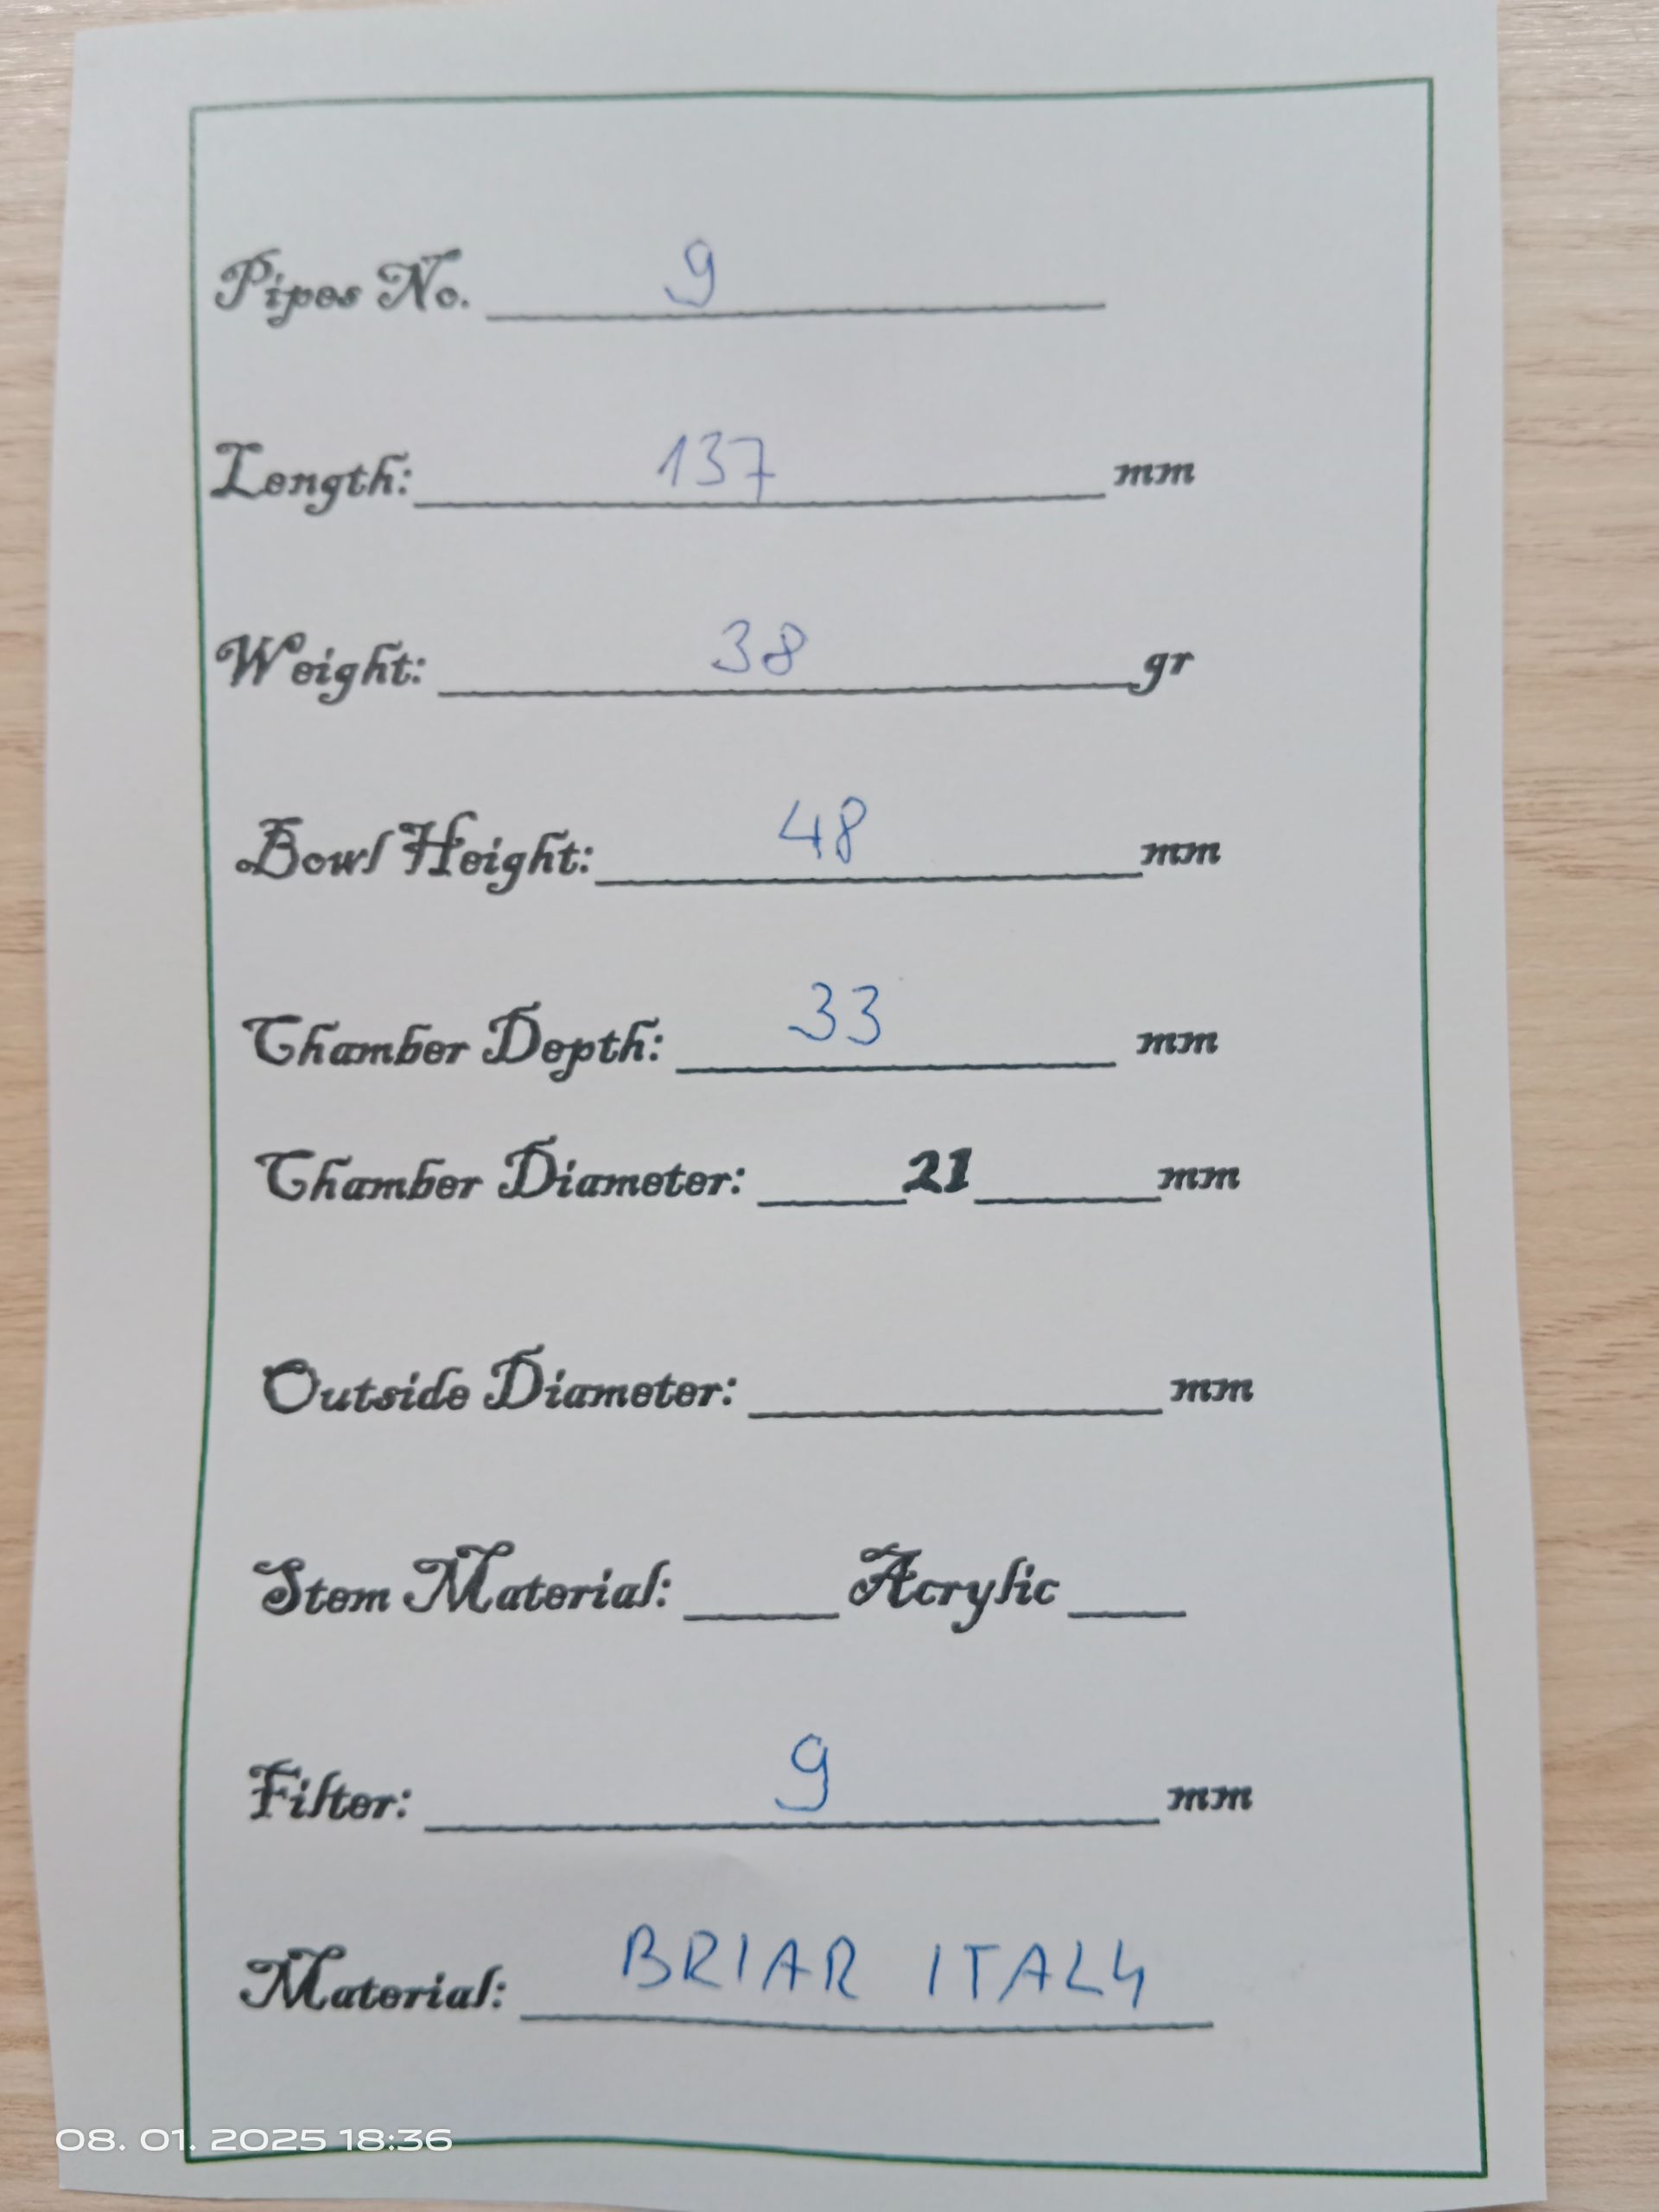 Pipes No. 9
Length: 137 mm
Weight: 38 gr
Bowl Height: 48 mm
Chamber Depth: 33 mm
Chamber Diameter: 21 mm
Outside Diameter: mm
Stem Material: Acrylic
Filter: 9 mm
Material: BRIAR ITALY
08. 01. 2025 18:36